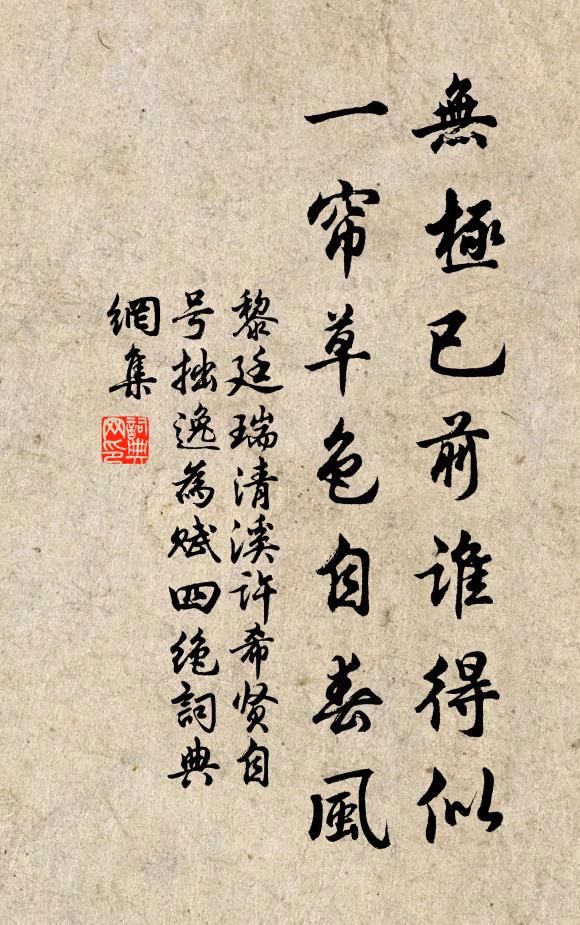 無極已前谁得似
一帘草色自春風
黎廷瑞清溪许希贤自
号拙逸為赋四绝詞典
網集
詞典
网印